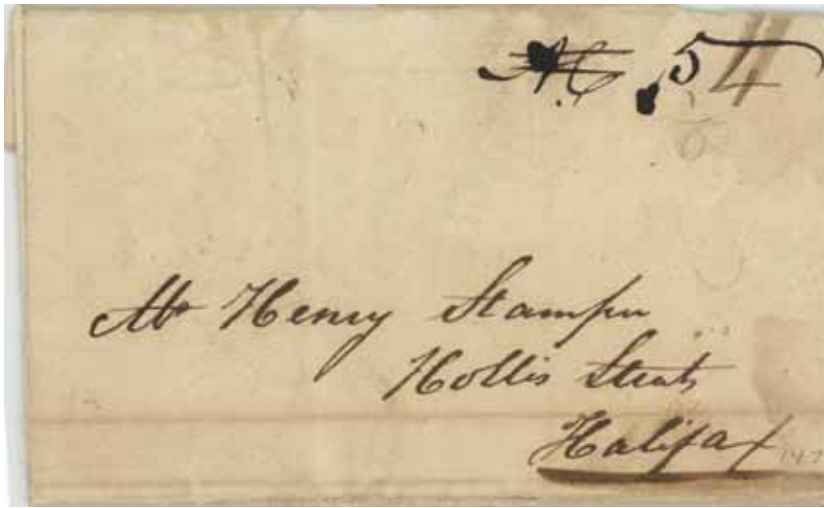 Mr Henry Stamper
Hollis Street
Halifax